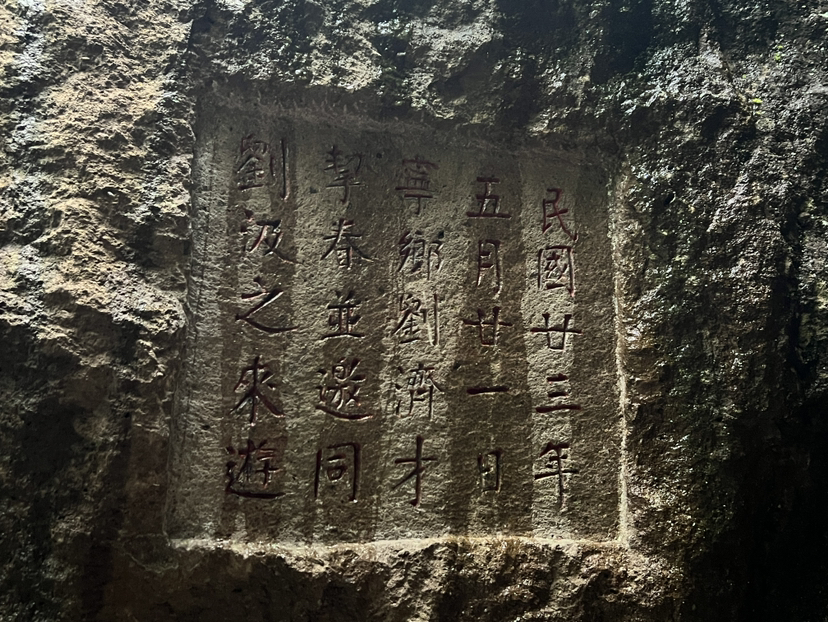 民國廿三年
五月廿一日
寧鄉劉濟才
挈春並邀同
劉汲之來遊